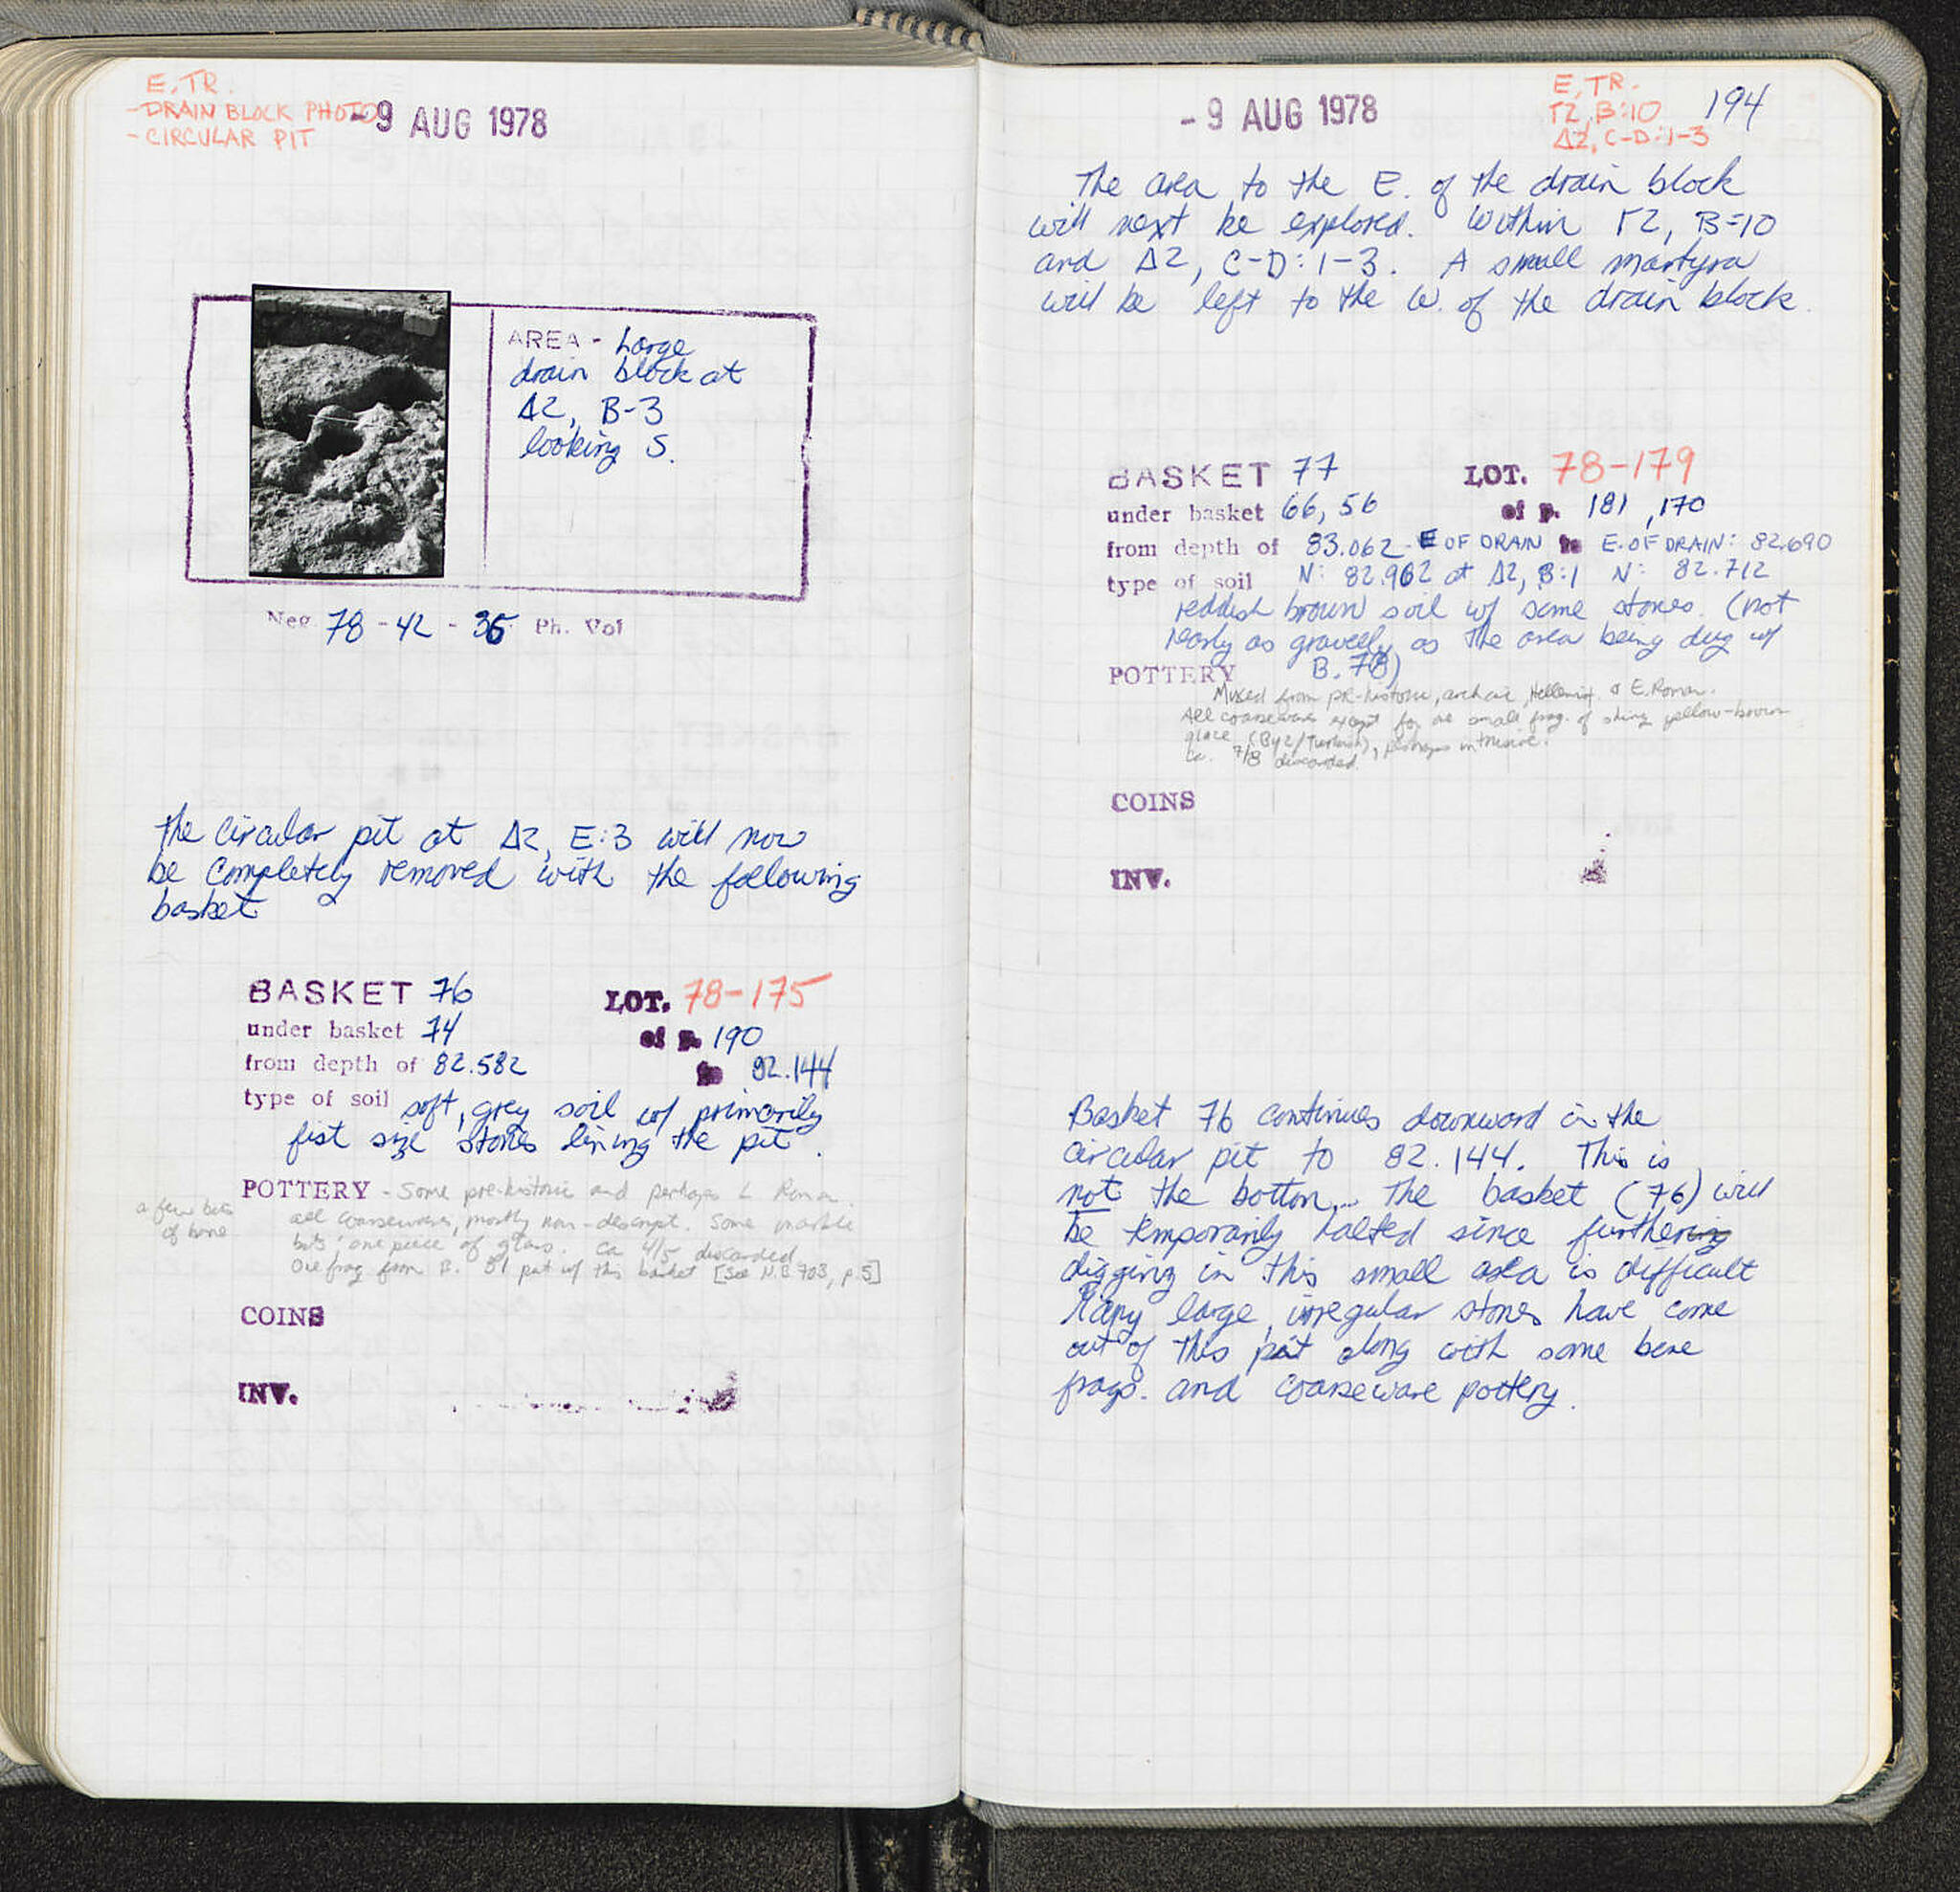 E. TR.
- DRAIN BLOCK PHOTO
- CIRCULAR PIT
- 9 AUG 1978
AREA - Large
drain block at
Δ2, B-3
looking S.
Neg. 78 - 42 - 36 Ph. Vol
The circular pit at Δ2, E:3 will now
be completely removed with the following
basket
BASKET 76 LOT. 78-175
under basket 74 of p. 190
from depth of 82.582 to 82.144
type of soil soft, grey soil w/ primarily
fist size stones lining the pit.
POTTERY - Some pre-historic and perhaps L Roman.
a few bits
of bone
all coarsewares, mostly non-descript. Some marble
bits, one piece of glass. ca 4/5 discarded
One frag from B. 51 put w/ this basket [See N.B. 703, p.5]
COINS
INV.
- 9 AUG 1978
E. TR.
Γ2, B:10
Δ2, C-D:1-3
194
The area to the E. of the drain block
will next be explored. Within Γ2, B=10
and Δ2, C-D:1-3. A small martyra
will be left to the W. of the drain block.
BASKET 77 LOT. 78-179
under basket 66, 56 of p. 181, 170
from depth of 83.062 - E OF DRAIN to E. OF DRAIN: 82.690
type of soil N: 82.962 at Δ2, B:1 N: 82.712
reddish brown soil w/ some stones. (not
nearly as gravelly as the area being dug w/
B. 78)
POTTERY
Mixed from pre-historic, archaic, Hellenist. & E. Roman.
All coarsewares except for one small frag. of shiny yellow-brown
glaze (Byz/Turkish), perhaps intrusive.
ca. 7/8 discarded.
COINS
INV.
Basket 76 continues downward in the
circular pit to 82.144. This is
not the bottom... The basket (76) will
be temporarily halted since further
digging in this small area is difficult
Many large, irregular stones have come
out of this pit along with some bone
frags. and coarseware pottery.